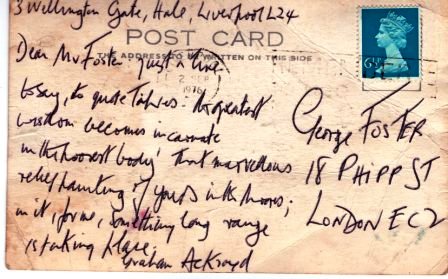 3 Wellington Gate, Hale, Liverpool L24
POST CARD
THE ADDRESS TO BE WRITTEN ON THIS SIDE
Dear Mr Foster Just a line
2 SEP
1976
6½P
to say, to quote 'the greatest
wisdom becomes incarnate
in the poorest body' that marvellous
relief painting of yours in the moores;
in it, for me, something long range
is taking place.
Graham Ackroyd
George FOSTER
18 PHIPP ST
LONDON EC2